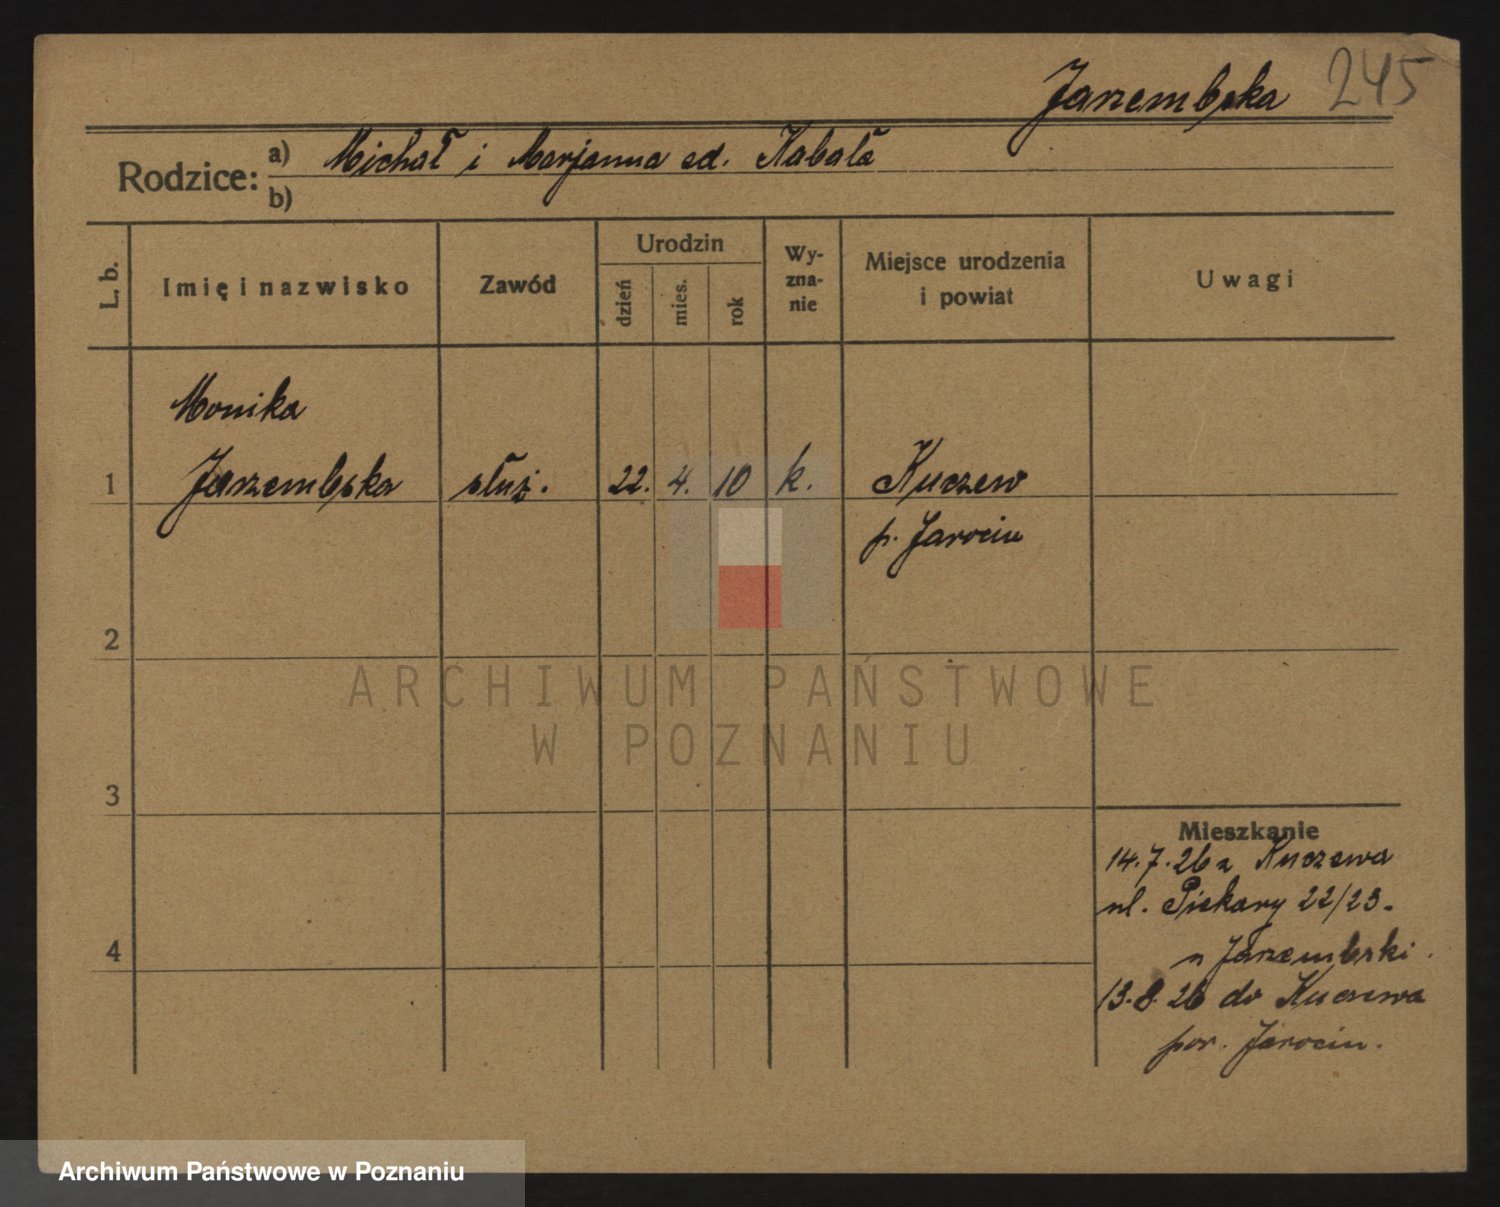 Jarzembska 245
Rodzice: a) Michał i Marjanna ed. Kabała
b)
L. b.
Imię i nazwisko
Zawód
Urodzin
dzień
mies.
rok
Wy-
zna-
nie
Miejsce urodzenia
i powiat
Uwagi
Monika
1 Jarzembska służ. 22. 4. 10 k. Kuczew
p. Jarocin
2
3
4
ARCHIWUM PAŃSTWOWE
W POZNANIU
Mieszkanie
14.7.26 z Kuczewa
ul. Piekary 22/23.
u Jarzembski.
13.8.26 do Kuczewa
pow. Jarocin.
Archiwum Państwowe w Poznaniu